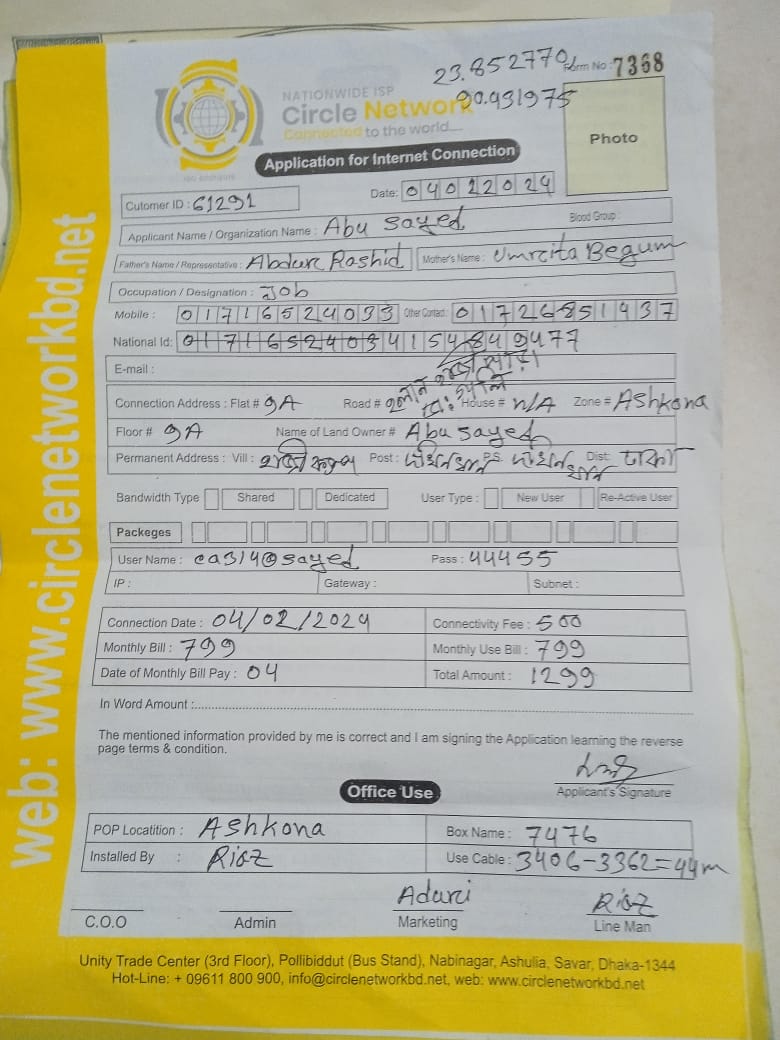 23.852770
Form No : 7368
90.931975
NATIONWIDE ISP
Circle Network
Connected to the world....
Photo
Application for Internet Connection
Cutomer ID : 61291
Date: 04022024
Applicant Name / Organization Name : Abu Sayed Blood Group :
Father's Name / Representative : Abdur Rashid Mother's Name : Begum
Occupation / Designation : Job
Mobile : 01716524033 Other Contact: 01726851437
National Id:
E-mail :
Connection Address : Flat # 9A Road # House # N/A Zone # Ashkona
Floor # 9A Name of Land Owner # Abu Sayed
Permanent Address : Vill : Post : P.S. Dist: ঢাকা
Bandwidth Type Shared Dedicated User Type : New User Re-Active User
Packeges
User Name : ca314@sayed Pass : 44455
IP : Gateway : Subnet :
Connection Date : 04/02/2024 Connectivity Fee : 500
Monthly Bill : 799 Monthly Use Bill : 799
Date of Monthly Bill Pay : 04 Total Amount : 1299
In Word Amount :
The mentioned information provided by me is correct and I am signing the Application learning the reverse
page terms & condition.
Applicant's Signature
Office Use
POP Locatition : Ashkona Box Name : 7476
Installed By : Riaz Use Cable : 3406-3362=44m
Riaz
C.O.O Admin Marketing Line Man
Unity Trade Center (3rd Floor), Pollibiddut (Bus Stand), Nabinagar, Ashulia, Savar, Dhaka-1344
Hot-Line: + 09611 800 900, info@circlenetworkbd.net, web: www.circlenetworkbd.net
web: www.circlenetworkbd.net